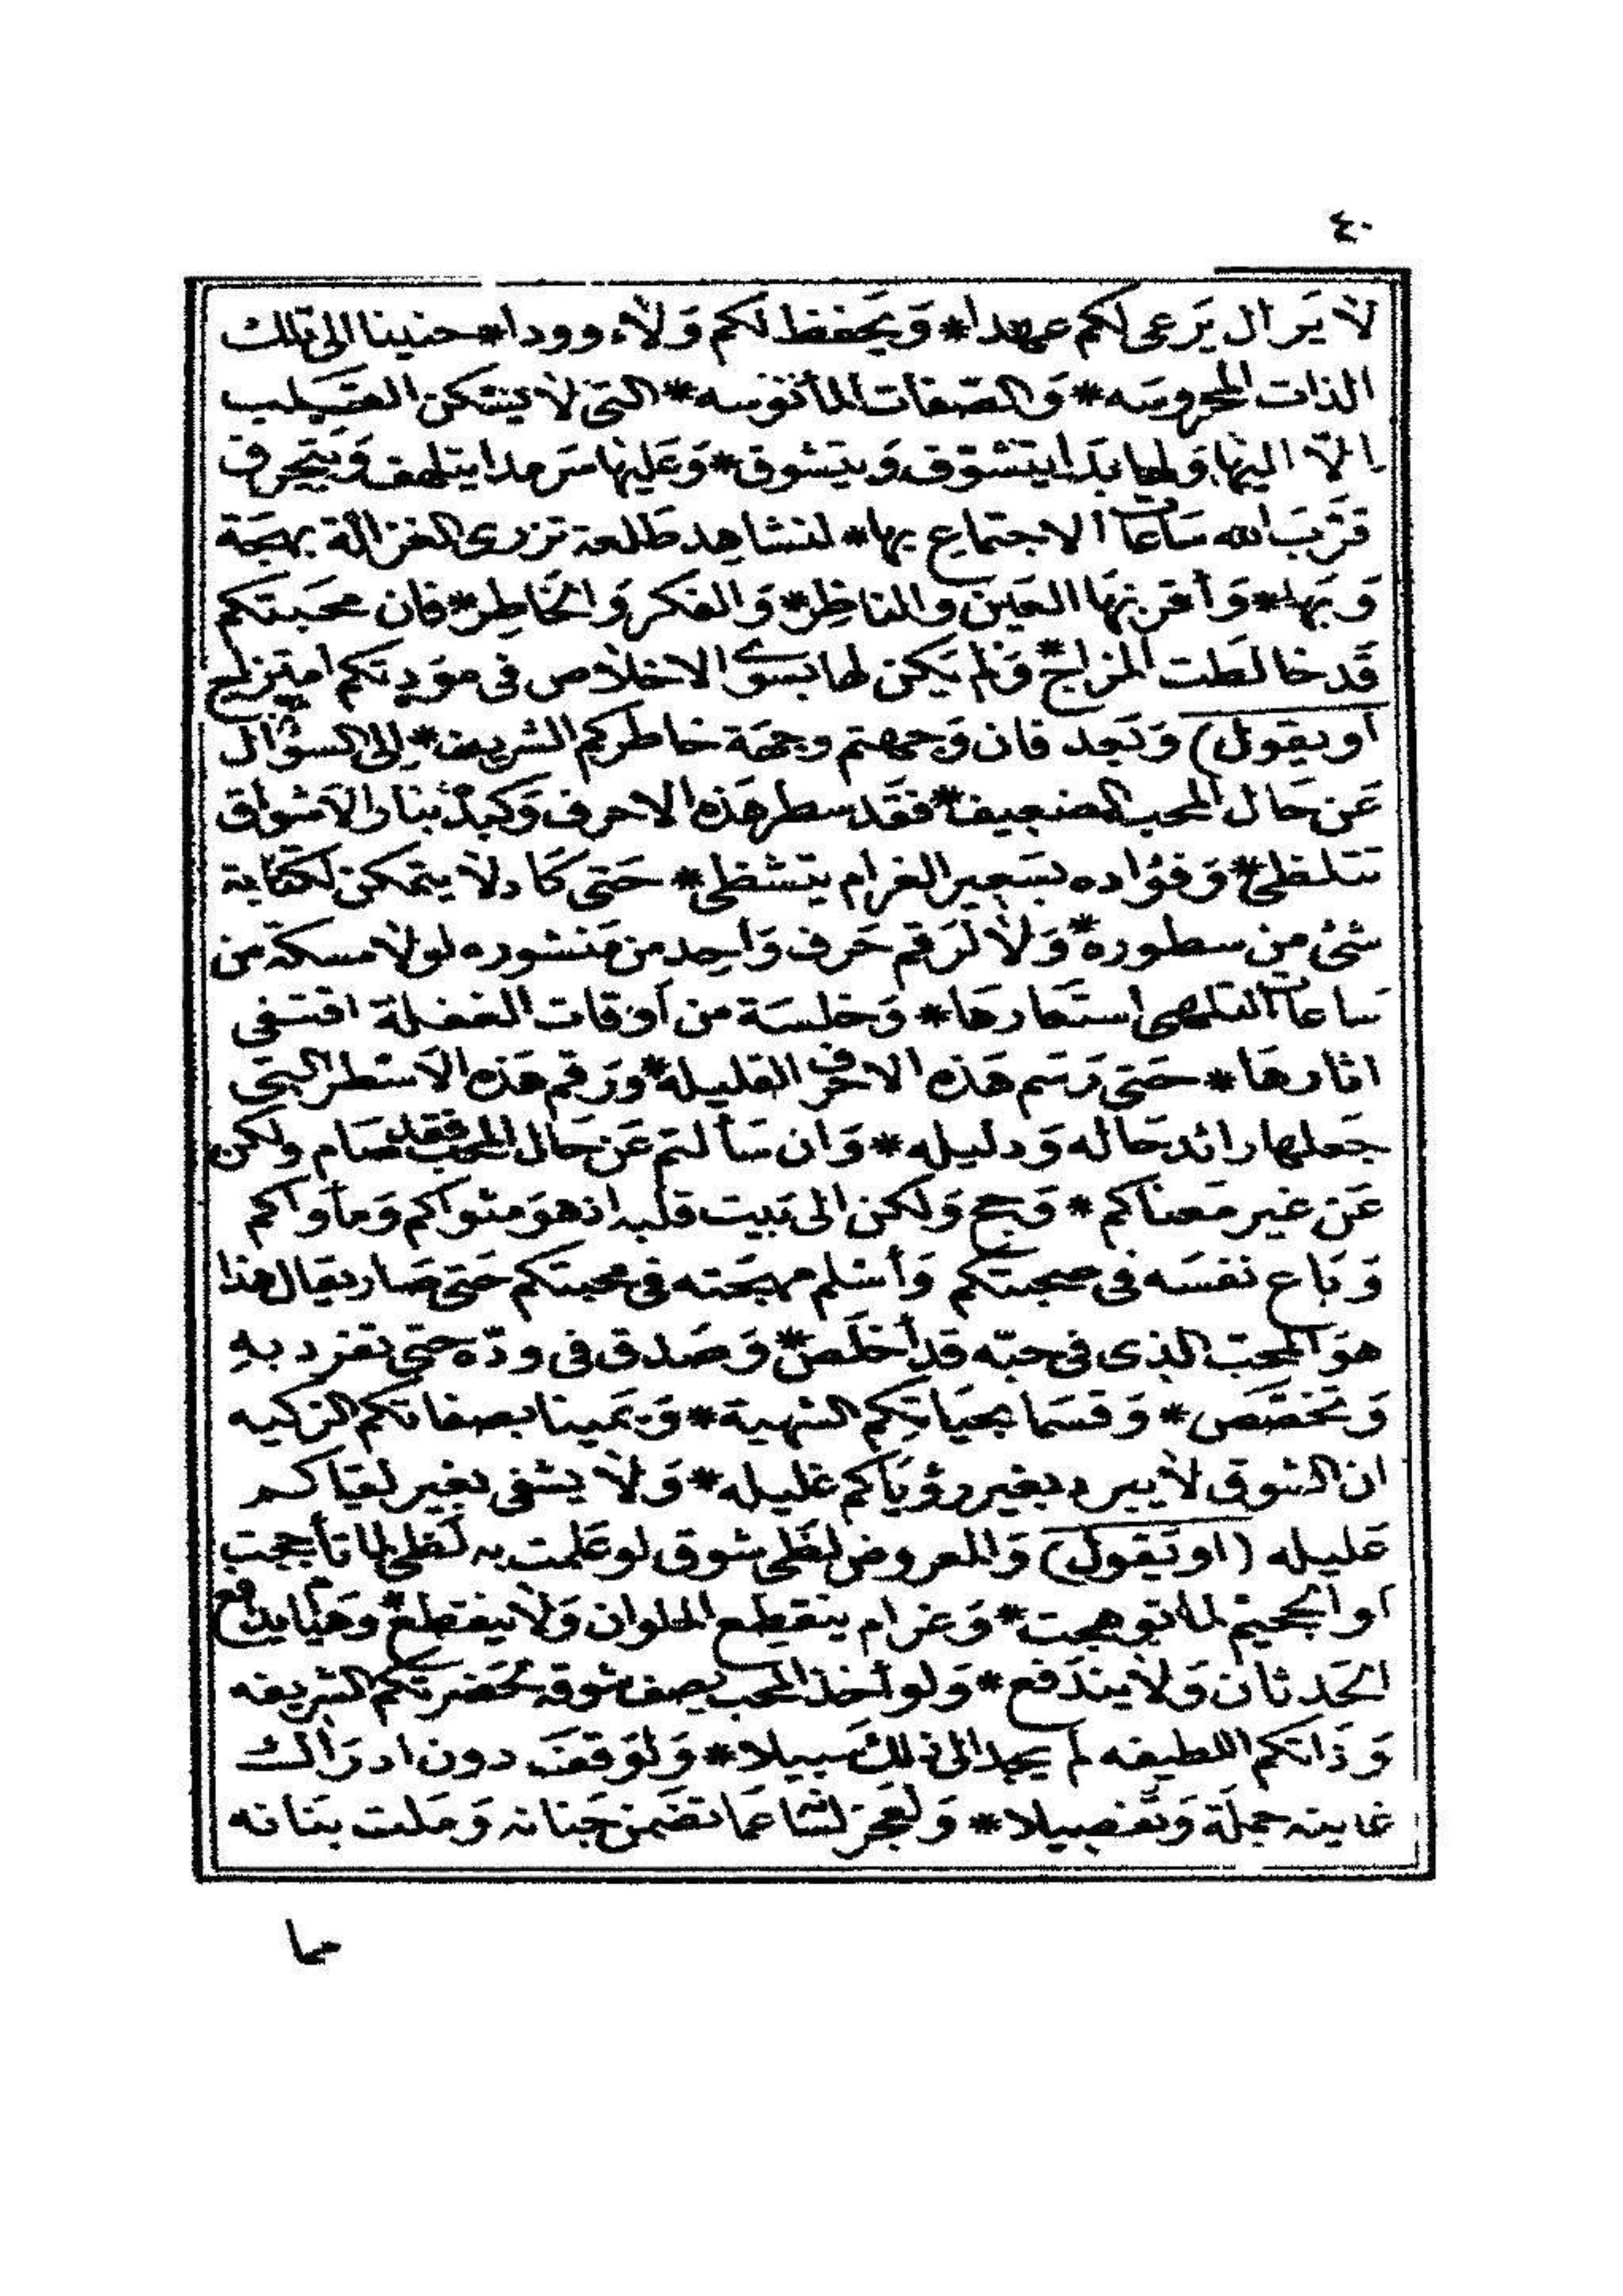 ٤٠
لا يزال يَرعى لكم عهدا* وَيحفظ لكم وَلاء وودا* حنينا الى تلك
الذات المحروسَه* وَالصّفات المأنوسه* التى لا يسكن القَلب
الّا اليها وَلها بدا يتشوّق وَيتشوق* وَعَليها سَرمدا يتلهف وَيتحرق
قرّبَ الله سَاعات الاجتماع بها* لنشاهد طَلعة تزرى الغزالة بهجَة
وَبَها* وَأقر بهَا العَين والناظِر* وَالفكر وَالخَاطِر* فان محَبتكم
قَد خالطَت المزاج* وَلم يَكن لها بسوى الاخلاص فى موَدتكم امتزاج
أو يقول) وَبَعد فان وَجهتم وجهَة خاطركم الشريف* اِلى السؤال
عَن حَال المحب الضعيف* فقَد سطر هَذه الاحرف وَكبدُه بنار الاشواق
تتلظى* وَفؤاده بسَعير الغرام يتشظى* حَتى كَاد لا يتمكن لكتابة
شئ من سطوره* وَلا لرَقم حَرف وَاحِد من مَنشوره لولا مسكة من
سَاعات التلهى استَعارهَا* وَخلسَة من اَوقات الغفلة اقتفى
اثارهَا* حَتى رَسَم هَذه الاحرف القليلة* ورَقم هَذه الاَسطر التى
جَعلها رائد حَاله وَدليله* وَان سَألتم عَن حَال المحب فقد صَام ولكن
عَن غير مَعناكم* وَحج وَلكن الى بَيت قلبه اذ هوَ مثواكم وَمأواكم
وَبَاع نفسَه فى صحبتكم وَأسلم مهجَته فى محبتكم حَتى صَار يقال هذا
هوَ المحبّ الذى فى حبّه قد أخلَص* وَصَدق فى ودّه حتى تفرد بهِ
وَتخصّص* وَقسَما بحيَاتكم الشهية* وَيَمينا بصفاتكم الزكيه
ان الشوق لا يبرد بغير رؤيَاكم غليله* وَلا يشفى بغير لقياكم
عَليله (او يَقول) وَالمعروض لظَى شوق لو عَلمت به لَظى لما تأججت
أو الجحيم لما توهجت* وَغرام ينقطِع الملوان وَلا ينقطع* وَهيَام يدفع
الحَدثان وَلا يندَفع* وَلو أخذ المحب يصف شوقه لحَضرتكم الشريفه
وَذَاتكم اللطيفه لم يجد الى ذلك سَبيلا* وَلوَقف دون ادرَاك
غايته جملَة وَتفصيلا* وَلعَجز لسَا عمَا تضمن جَنانه وَملت بنَانه
مما